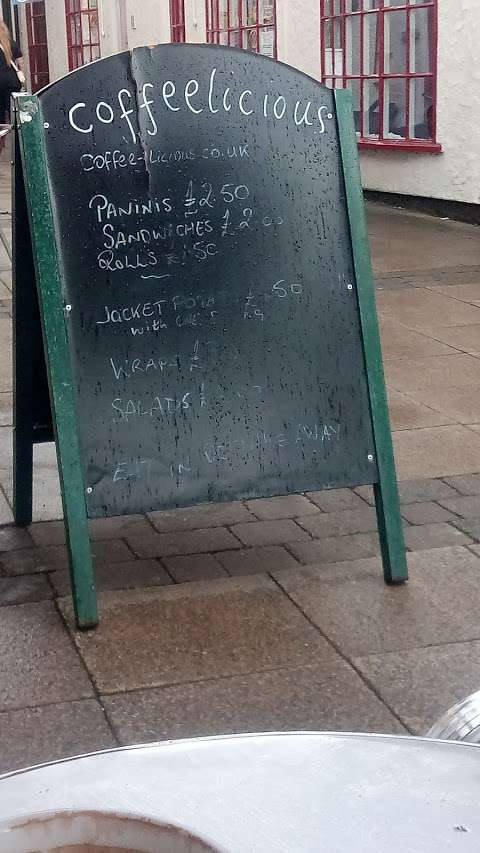 coffeelicious
coffee-licious.co.uk
PANINIS £2.50
SANDWICHES £2.00
ROLLS £1.50
JACKET POTA £ .50
with
WRAPS £
SALADS £
EAT IN OR TAKE AWAY